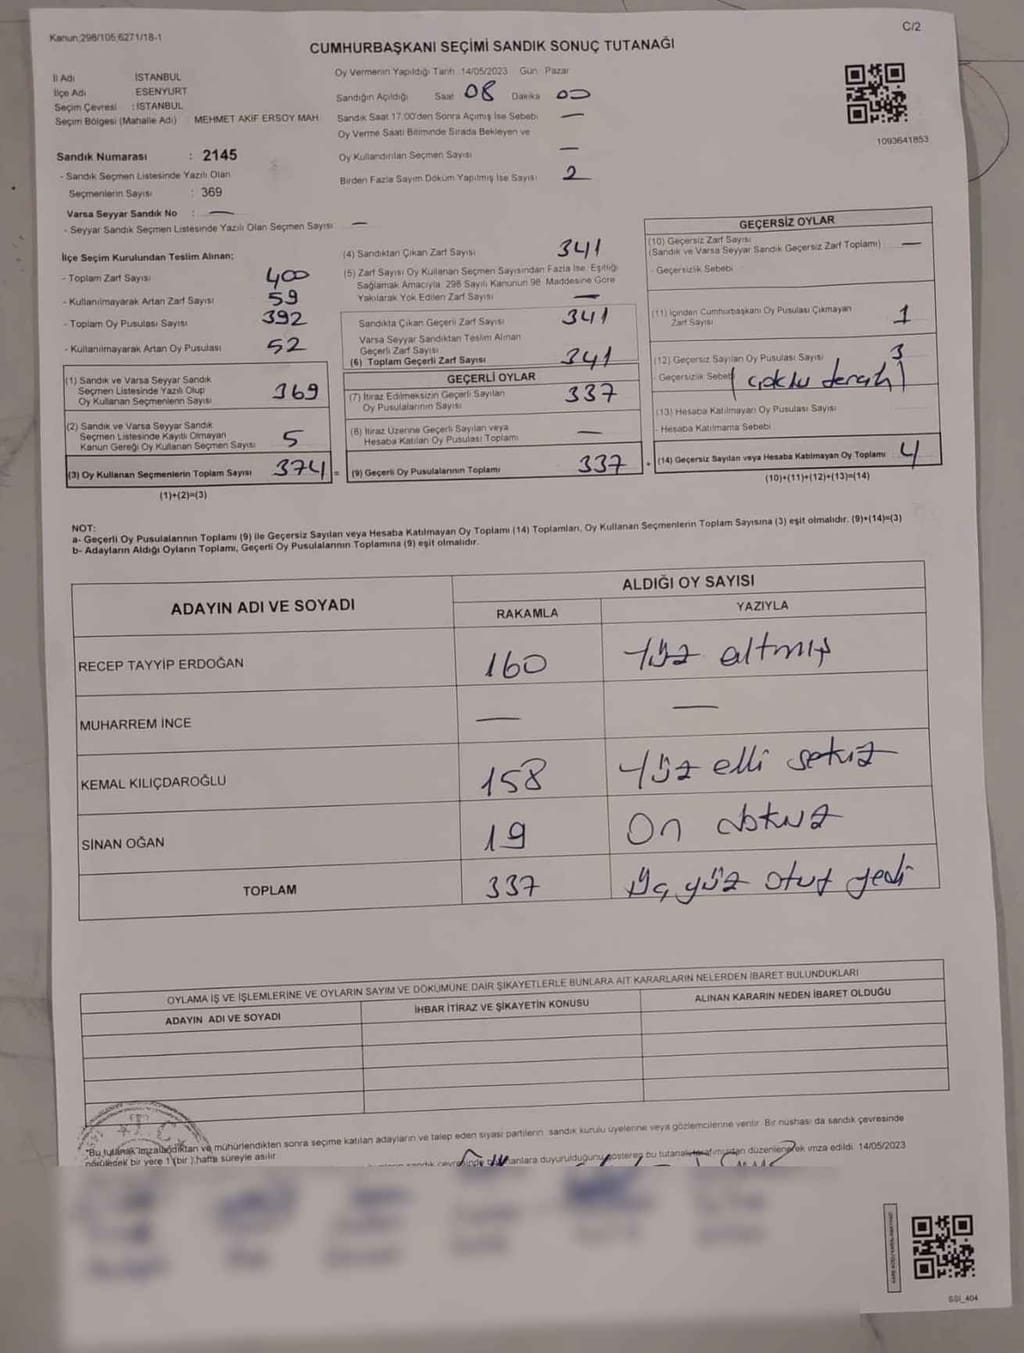 Kanun:298/105;6271/18-1
C/2
CUMHURBAŞKANI SEÇİMİ SANDIK SONUÇ TUTANAĞI
İl Adı İSTANBUL
İlçe Adı ESENYURT
Seçim Çevresi : İSTANBUL
Seçim Bölgesi (Mahalle Adı) MEHMET AKİF ERSOY MAH.
Sandık Numarası : 2145
- Sandık Seçmen Listesinde Yazılı Olan
Seçmenlerin Sayısı : 369
Varsa Seyyar Sandık No : —
- Seyyar Sandık Seçmen Listesinde Yazılı Olan Seçmen Sayısı —
Oy Vermenin Yapıldığı Tarih :14/05/2023 Gün : Pazar
Sandığın Açıldığı Saat 08 Dakika 00
Sandık Saat 17:00'den Sonra Açımış İse Sebebi —
Oy Verme Saati Bitiminde Sırada Bekleyen ve
Oy Kullandırılan Seçmen Sayısı —
Birden Fazla Sayım Döküm Yapılmış İse Sayısı 2
1093641853
İlçe Seçim Kurulundan Teslim Alınan;
- Toplam Zarf Sayısı 400
- Kullanılmayarak Artan Zarf Sayısı 59
- Toplam Oy Pusulası Sayısı 392
- Kullanılmayarak Artan Oy Pusulası 52
(1) Sandık ve Varsa Seyyar Sandık
Seçmen Listesinde Yazılı Olup
Oy Kullanan Seçmenlerin Sayısı 369
(2) Sandık ve Varsa Seyyar Sandık
Seçmen Listesinde Kayıtlı Olmayan
Kanun Gereği Oy Kullanan Seçmen Sayısı 5
(3) Oy Kullanan Seçmenlerin Toplam Sayısı 374 =
(1)+(2)=(3)
(4) Sandıktan Çıkan Zarf Sayısı 341
(5) Zarf Sayısı Oy Kullanan Seçmen Sayısından Fazla İse, Eşitliği
Sağlamak Amacıyla, 298 Sayılı Kanunun 98. Maddesine Göre
Yakılarak Yok Edilen Zarf Sayısı —
Sandıkta Çıkan Geçerli Zarf Sayısı 341
Varsa Seyyar Sandıktan Teslim Alınan
Geçerli Zarf Sayısı
(6) Toplam Geçerli Zarf Sayısı 341
GEÇERLİ OYLAR
(7) İtiraz Edilmeksizin Geçerli Sayılan
Oy Pusulalarının Sayısı 337
(8) İtiraz Üzerine Geçerli Sayılan veya
Hesaba Katılan Oy Pusulası Toplamı —
(9) Geçerli Oy Pusulalarının Toplamı 337 +
GEÇERSİZ OYLAR
(10) Geçersiz Zarf Sayısı
(Sandık ve Varsa Seyyar Sandık Geçersiz Zarf Toplamı) —
- Geçersizlik Sebebi
(11) İçinden Cumhurbaşkanı Oy Pusulası Çıkmayan
Zarf Sayısı 1
(12) Geçersiz Sayılan Oy Pusulası Sayısı 3
- Geçersizlik Sebebi
(13) Hesaba Katılmayan Oy Pusulası Sayısı
- Hesaba Katılmama Sebebi
(14) Geçersiz Sayılan veya Hesaba Katılmayan Oy Toplamı 4
(10)+(11)+(12)+(13)=(14)
NOT:
a- Geçerli Oy Pusulalarının Toplamı (9) ile Geçersiz Sayılan veya Hesaba Katılmayan Oy Toplamı (14) Toplamları, Oy Kullanan Seçmenlerin Toplam Sayısına (3) eşit olmalıdır. (9)+(14)=(3)
b- Adayların Aldığı Oyların Toplamı, Geçerli Oy Pusulalarının Toplamına (9) eşit olmalıdır.
ADAYIN ADI VE SOYADI
ALDIĞI OY SAYISI
RAKAMLA YAZIYLA
RECEP TAYYİP ERDOĞAN 160 Yüz altmış
MUHARREM İNCE — —
KEMAL KILIÇDAROĞLU 158 Yüz elli sekiz
SİNAN OĞAN 19 On dokuz
TOPLAM 337 Üç yüz otuz yedi
OYLAMA İŞ VE İŞLEMLERİNE VE OYLARIN SAYIM VE DÖKÜMÜNE DAİR ŞİKAYETLERLE BUNLARA AİT KARARLARIN NELERDEN İBARET BULUNDUKLARI
ADAYIN ADI VE SOYADI İHBAR İTİRAZ VE ŞİKAYETİN KONUSU ALINAN KARARIN NEDEN İBARET OLDUĞU
T.C.
*Bu tutanak imzalandıktan ve mühürlendikten sonra seçime katılan adayların ve talep eden siyasi partilerin, sandık kurulu üyelerine veya gözlemcilerine verilir. Bir nüshası da sandık çevresinde
görülecek bir yere 1 (bir ) hafta süreyle asılır.
duyurulduğunu gösteren bu tutanak tarafımızdan düzenlenerek imza edildi. 14/05/2023
SSI_404